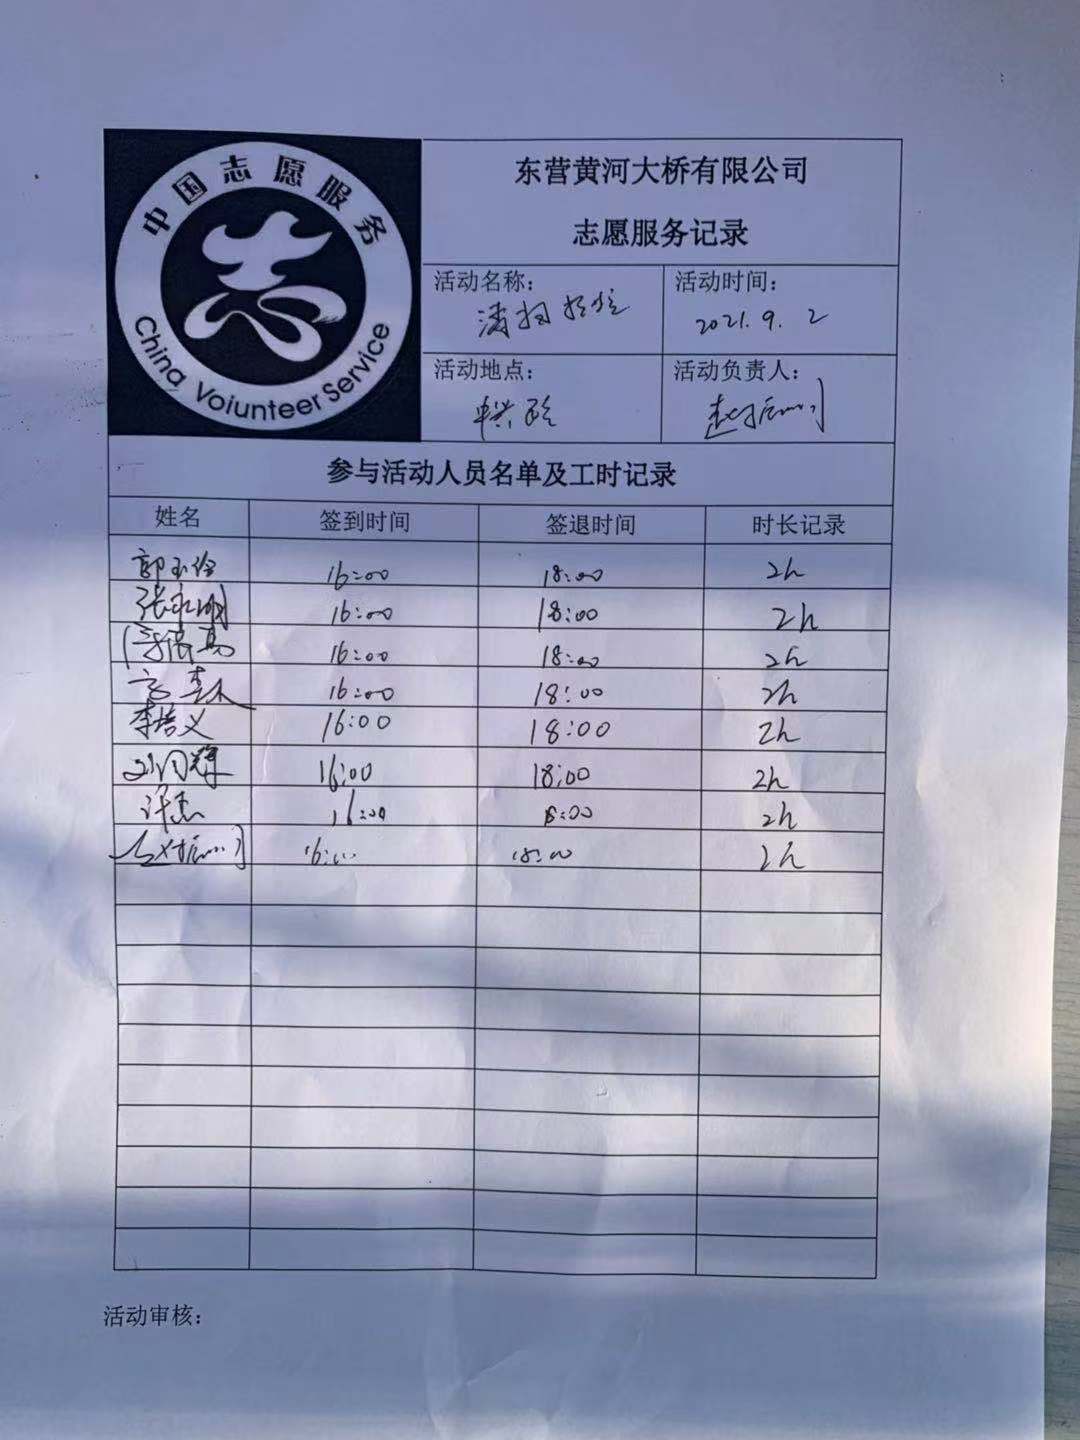 中国志愿服务
China Voiunteer Service
东营黄河大桥有限公司
志愿服务记录
活动名称：
清扫
活动时间：
2021.9.2
活动地点：
活动负责人：
参与活动人员名单及工时记录
姓名 签到时间 签退时间 时长记录
郭玉 16:00 18:00 2h
张 16:00 18:00 2h
16:00 18:00 2h
16:00 18:00 2h
李培义 16:00 18:00 2h
16:00 18:00 2h
许杰 16:00 18:00 2h
赵 16:00 18:00 2h
活动审核：